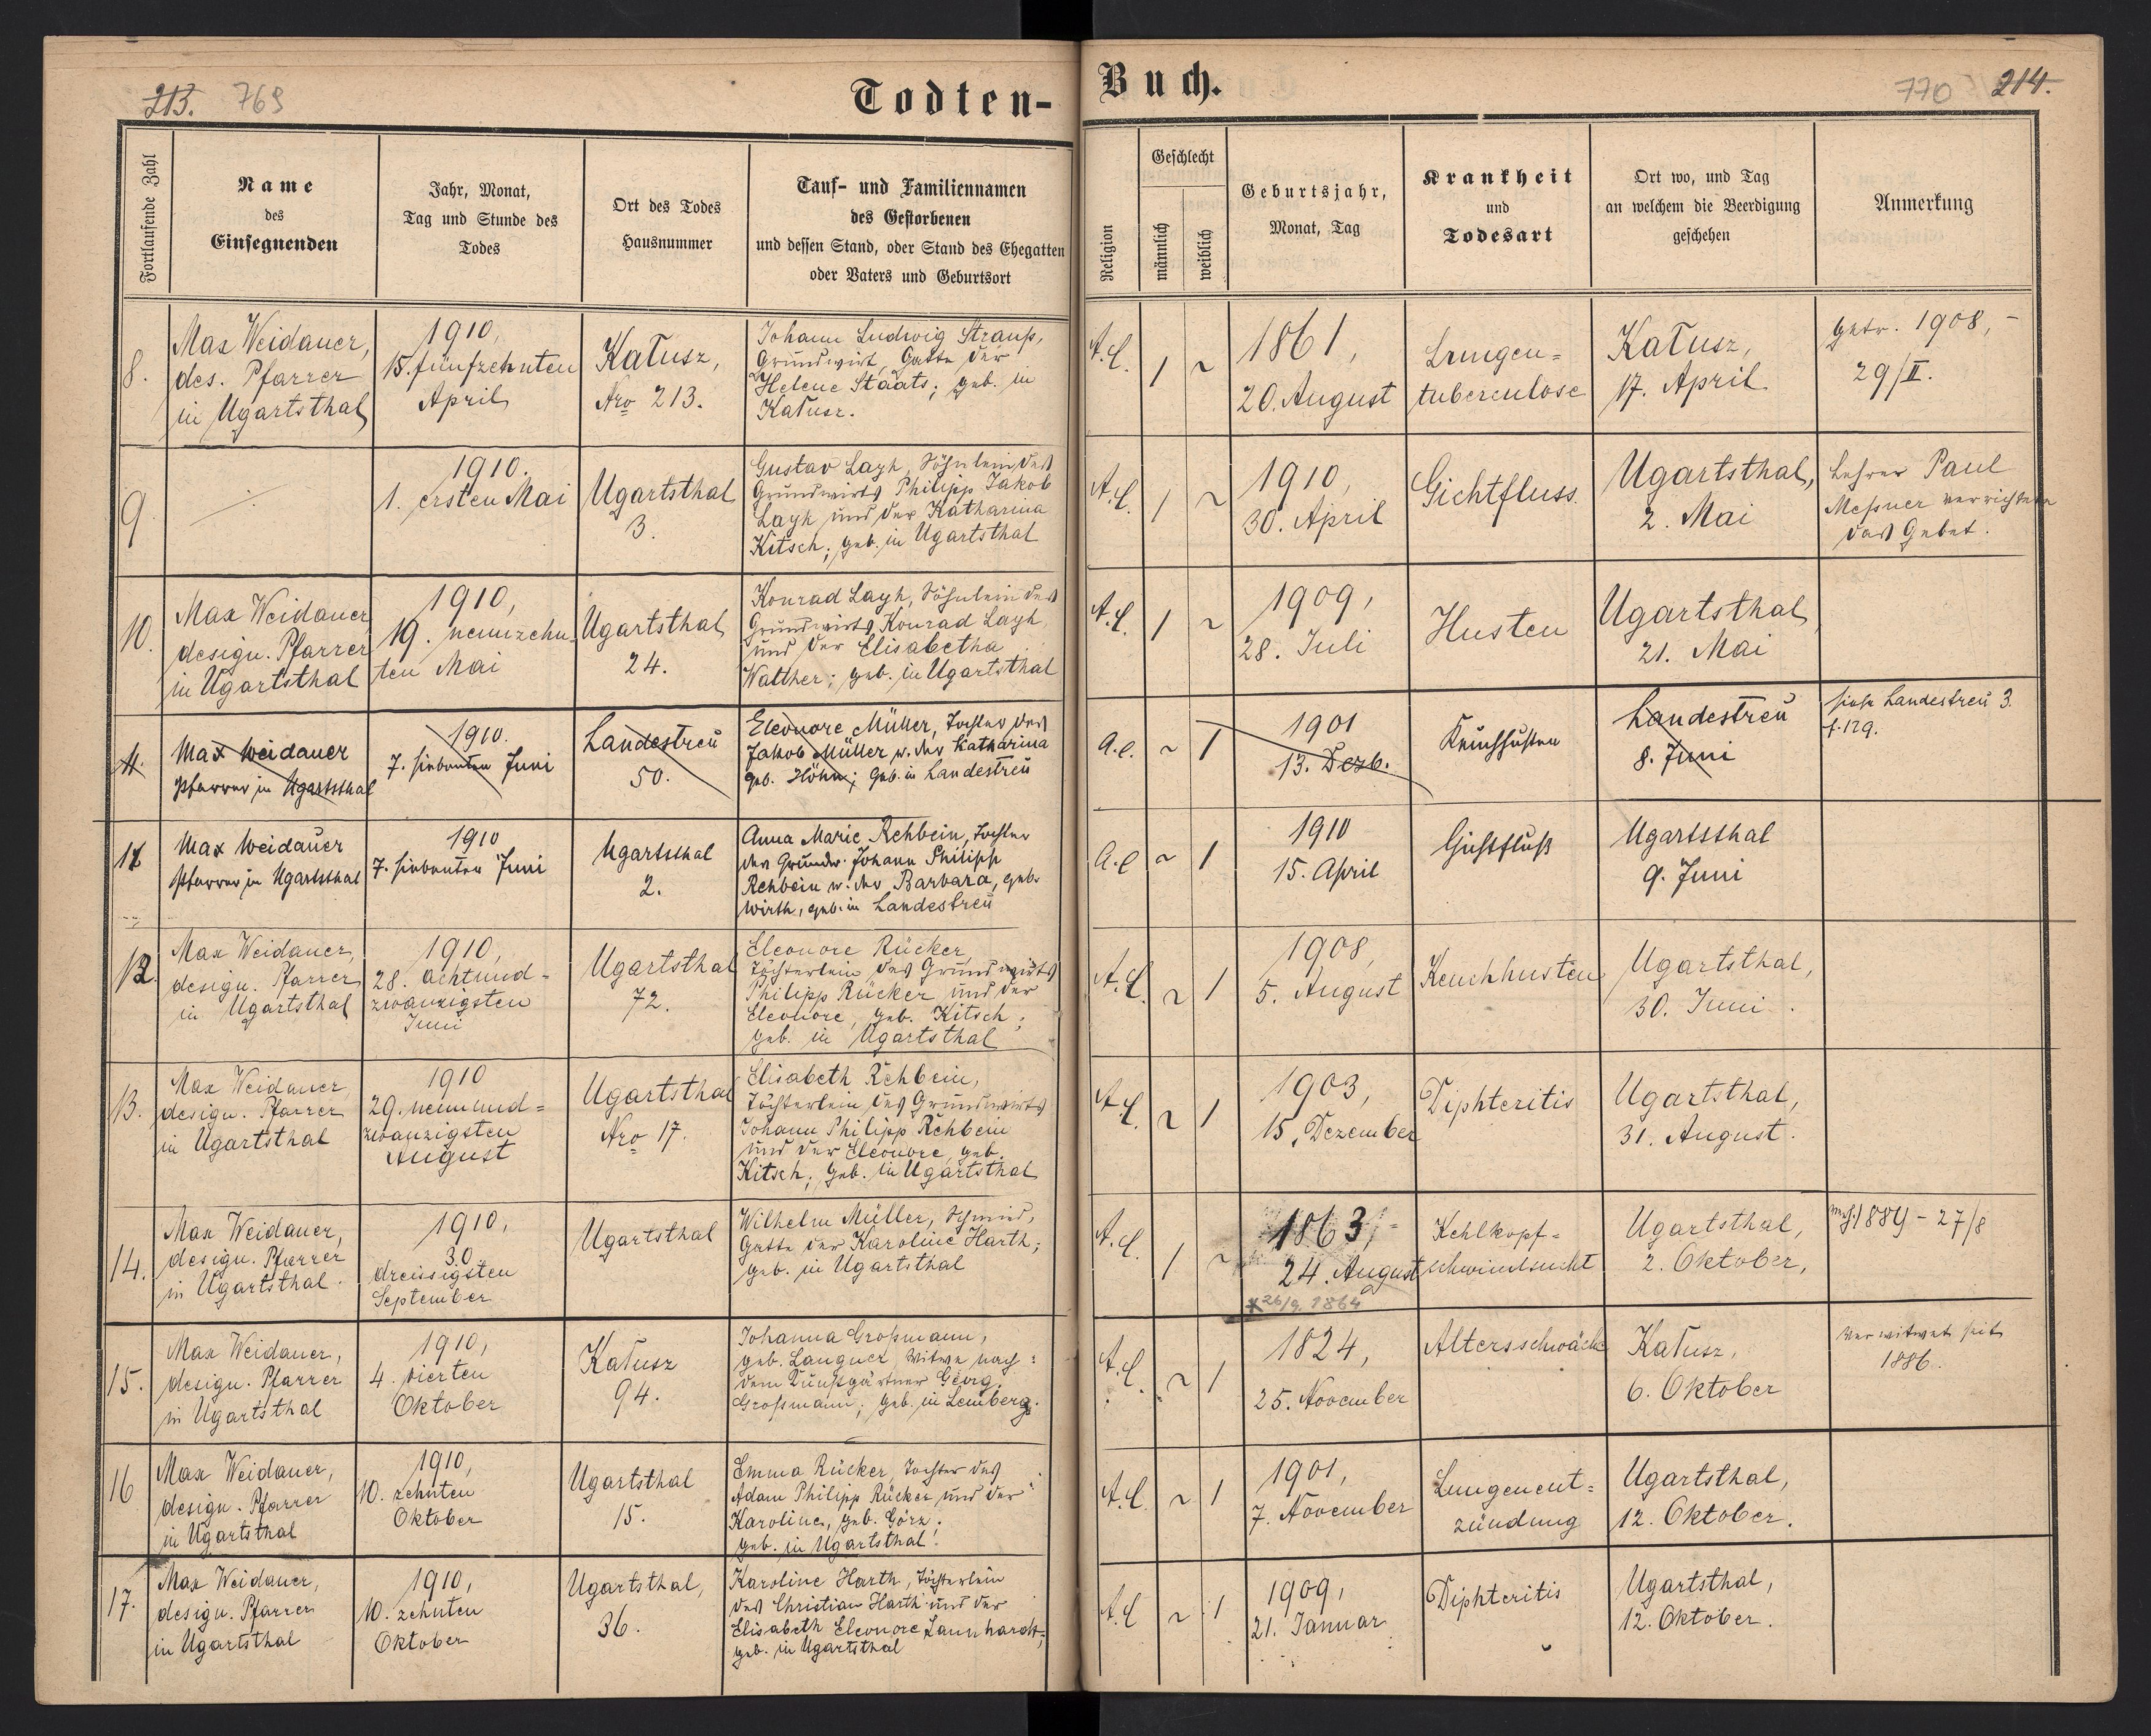 213. 769
Todten-
Buch.
770 214.
Fortlaufende Zahl
Name
des
Einsegnenden
Jahr, Monat,
Tag und Stunde des
Todes
Ort des Todes
Hausnummer
Tauf- und Familiennamen
des Gestorbenen
und dessen Stand, oder Stand des Ehegatten
oder Vaters und Geburtsort
Religion
Geschlecht
männlich
weiblich
Geburtsjahr,
Monat, Tag
Krankheit
und
Todesart
Ort wo, und Tag
an welchem die Beerdigung
geschehen
Anmerkung
8.
Max Weidauer,
des. Pfarrer
in Ugartsthal
1910,
15. fünfzehnten
April
Kałusz,
Nro 213.
Johann Ludwig Strauß,
Grundwirt, Gatte der
Helene Staats; geb. in
Kałusz.
A.C.
1
~
1861,
20. August
Lungen=
tuberculose
Kałusz,
17. April
getr. 1908, -
29/II.
9.
1910.
1. ersten Mai
Ugartsthal
3.
Gustav Layh, Söhnlein des
Grundwirts Philipp Jakob
Layh und der Katharina
Kitsch; geb. in Ugartsthal
A.C.
1
~
1910,
30. April
Gichtfluss.
Ugartsthal,
2. Mai
Lehrer Paul
Meßner verrichtete
das Gebet.
10.
Max Weidauer
design. Pfarrer
in Ugartsthal
1910,
19. neunzehn-
ten Mai
Ugartsthal
24.
Konrad Layh, Söhnlein des
Grundwirts Konrad Layh
und der Elisabetha
Walther; geb. in Ugartsthal
A.C.
1
~
1909,
28. Juli
Husten
Ugartsthal
21. Mai
11.
Max Weidauer
Pfarrer in Ugartsthal
1910.
7. siebenten Juni
Landestreu
50.
Eleonore Müller, Tochter des
Jakob Müller u. der Katharina
geb. Höhn; geb. in Landestreu
A.C.
~
1
1901
13. Dezb.
Keuchhusten
Landestreu
8. Juni
siehe Landestreu 3.
f. 129.
11
Max Weidauer
Pfarrer in Ugartsthal
1910
7. siebenten Juni
Ugartsthal
2.
Anna Marie Rehbein, Tochter
des Grundw. Johann Philipp
Rehbein u. der Barbara, geb.
Wirth, geb. in Landestreu
A.C
~
1
1910
15. April
Gichtfluß
Ugartsthal
9. Juni
12.
Max Weidauer,
design. Pfarrer
in Ugartsthal
1910,
28. achtund=
zwanzigsten
Juni
Ugartsthal
72.
Eleonore Rücker,
Töchterlein des Grundwirts
Philipp Rücker und der
Eleonore, geb. Kitsch;
geb. in Ugartsthal
A.C.
~
1
1908,
5. August
Keuchhusten
Ugartsthal,
30. Juni.
13.
Max Weidauer
design. Pfarrer
in Ugartsthal
1910
29. neunund=
zwanzigsten
August
Ugartsthal
Nro 17.
Elisabeth Rehbein,
Töchterlein des Grundwirts
Johann Philipp Rehbein
und der Eleonore, geb.
Kitsch; geb. in Ugartsthal
A.C.
~
1
1903,
15. Dezember
Diphteritis
Ugartsthal,
31. August.
14.
Max Weidauer,
design. Pfarrer
in Ugartsthal.
1910,
30.
dreissigsten
September
Ugartsthal
Wilhelm Müller, Schmied,
Gatte der Karoline Harth;
geb. in Ugartsthal
A.C.
1
~
1863,
24. August
* 26/9. 1864
Kehlkopf=
schwindsucht
Ugartsthal,
2. Oktober,
1889 - 27/8
15.
Max Weidauer,
design. Pfarrer
in Ugartsthal
1910,
4. vierten
Oktober
Kałusz
94.
Johanna Großmann,
geb. Langner, Witwe nach
dem Kunstgärtner Georg
Großmann; geb. in Lemberg.
A.C.
~
1
1824,
25. November
Altersschwäche
Kałusz,
6. Oktober
Verwitwet seit
1886.
16
Max Weidauer,
design. Pfarrer
in Ugartsthal
1910,
10. zehnten
Oktober
Ugartsthal
15.
Emma Rücker, Tochter des
Adam Philipp Rücker und der
Karoline, geb. Görz;
geb. in Ugartsthal.
A.C.
~
1
1901,
7. November
Lungenent=
zündung
Ugartsthal,
12. Oktober.
17.
Max Weidauer,
design. Pfarrer
in Ugartsthal
1910,
10. zehnten
Oktober
Ugartsthal,
36.
Karoline Harth, Töchterlein
des Christian Harth und der
Elisabeth Eleonore Lannhardt;
geb. in Ugartsthal
A.C
~
1
1909,
21. Januar
Diphteritis
Ugartsthal,
12. Oktober.